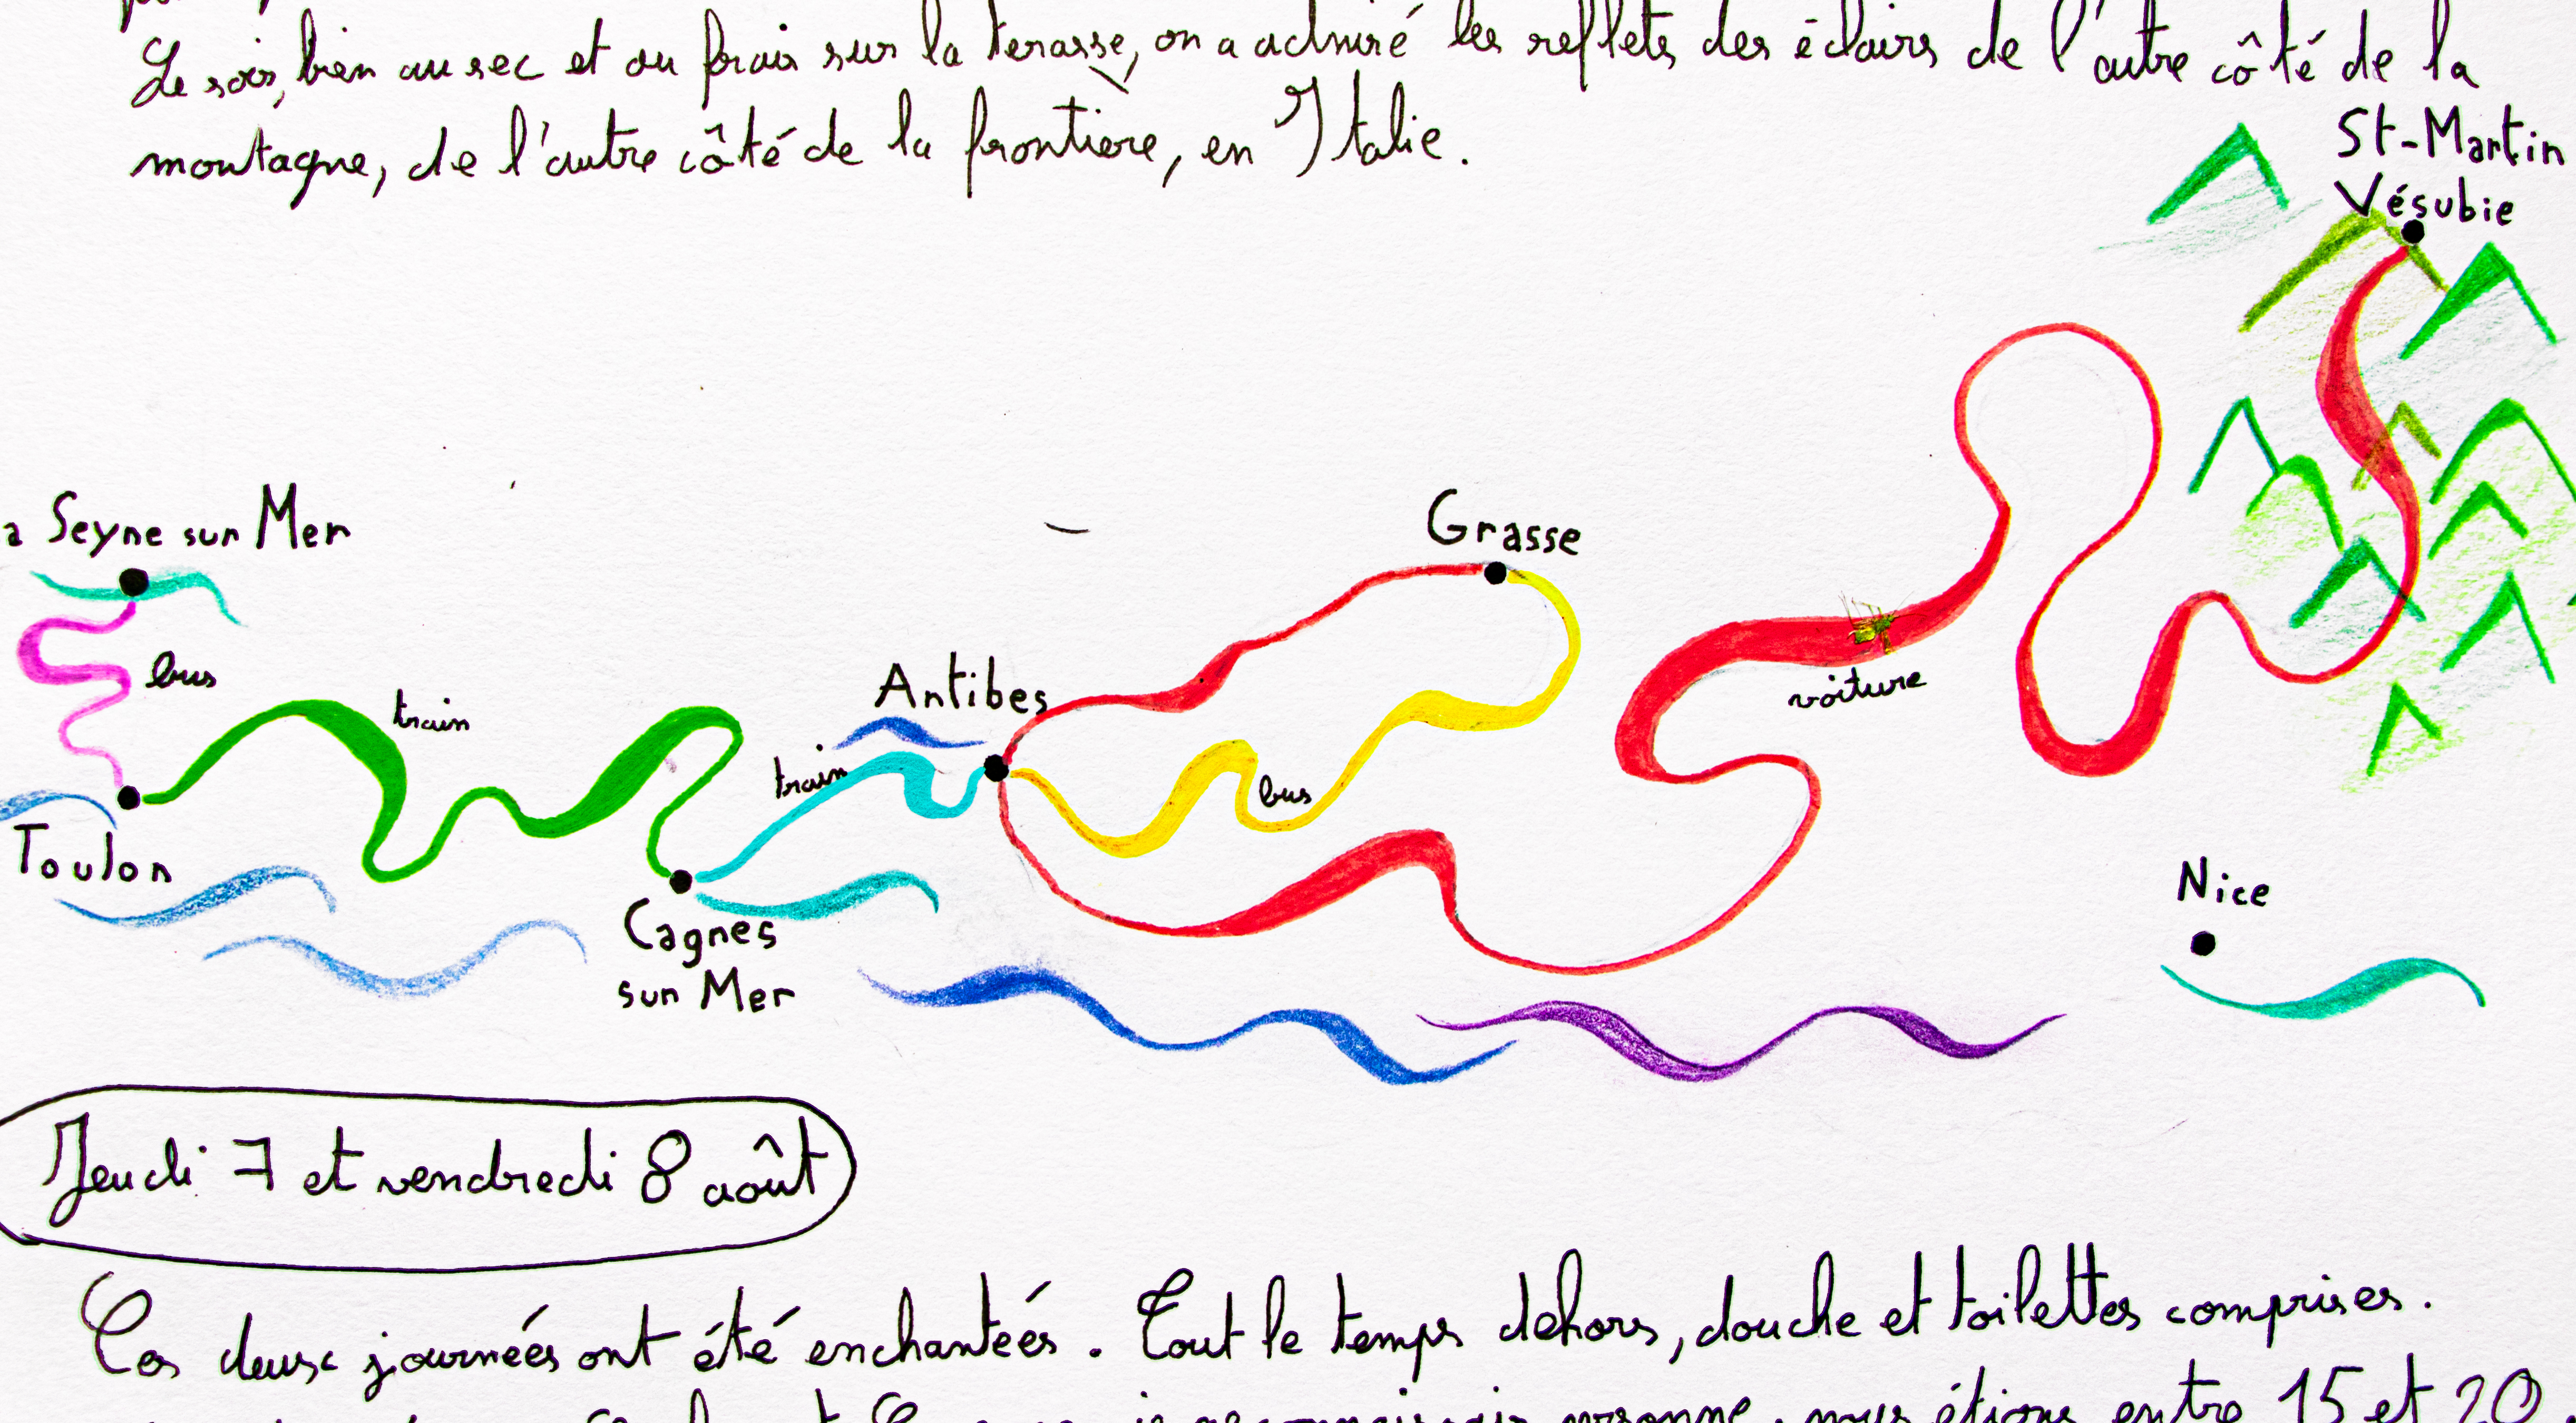 Le soir, bien au sec et au frais sur la terasse, on a admiré les reflets des éclairs de l'autre côté de la
montagne, de l'autre côté de la frontière, en Italie.
St-Martin
Vésubie
a Seyne sur Mer
Grasse
bus
train
Antibes
voiture
train
bus
Toulon
Nice
Cagnes
sur Mer
Jeudi 7 et vendredi 8 août
Ces deux journées ont été enchantées. Tout le temps dehors, douche et toilettes comprises.
je reconnaissais personne, nous étions entre 15 et 20